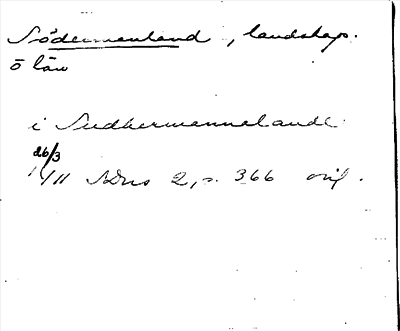 Södermanland, landskap.
ō län
i Sudhermannelande
26/3
1411 SDns 2, s. 366 orig.